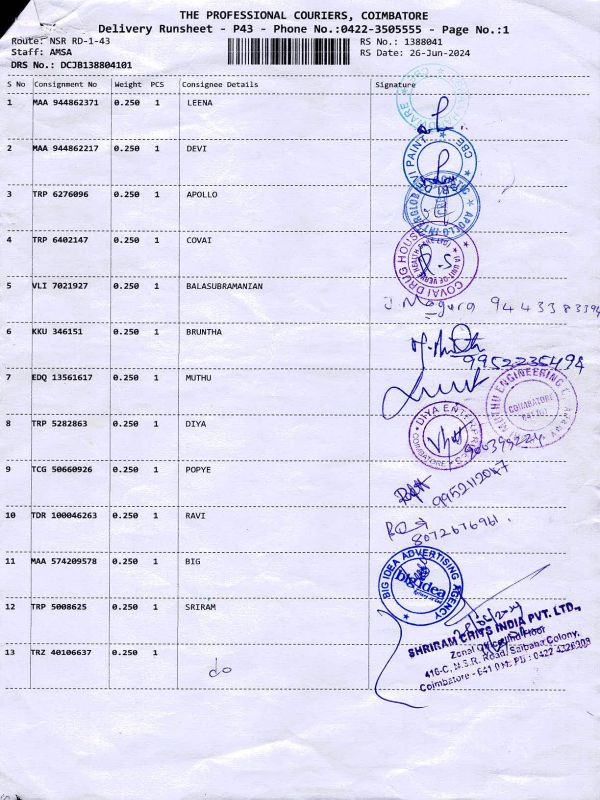 THE PROFESSIONAL COURIERS, COIMBATORE
Delivery Runsheet - P43 - Phone No.:0422-3505555 - Page No.:1
Route: NSR RD-1-43 RS No.: 1388041
Staff: AMSA RS Date: 26-Jun-2024
DRS No.: DCJB138804101
S No Consignment No Weight PCS Consignee Details Signature
1 MAA 944862371 0.250 1 LEENA
2 MAA 944862217 0.250 1 DEVI
DEVI PAINT CBE
3 TRP 6276096 0.250 1 APOLLO
APOLLO
4 TRP 6402147 0.250 1 COVAI
COVAI DRUG HOUSE
5 VLI 7021927 0.250 1 BALASUBRAMANIAN
9443383394
6 KKU 346151 0.250 1 BRUNTHA
9952235494
7 EDQ 13561617 0.250 1 MUTHU
MUTHU ENGINEERING COIMBATORE
8 TRP 5282863 0.250 1 DIYA
DIYA ENTERPRISES COIMBATORE
9 TCG 50660926 0.250 1 POPYE
9952112047
10 TDR 100046263 0.250 1 RAVI
8072676961.
11 MAA 574209578 0.250 1 BIG
BIG IDEA ADVERTISING AGENCY
big idea
12 TRP 5008625 0.250 1 SRIRAM
SHRIRAM CHITS INDIA PVT. LTD.,
416-C, N.S.R. Road, Saibaba Colony,
13 TRZ 40106637 0.250 1
do